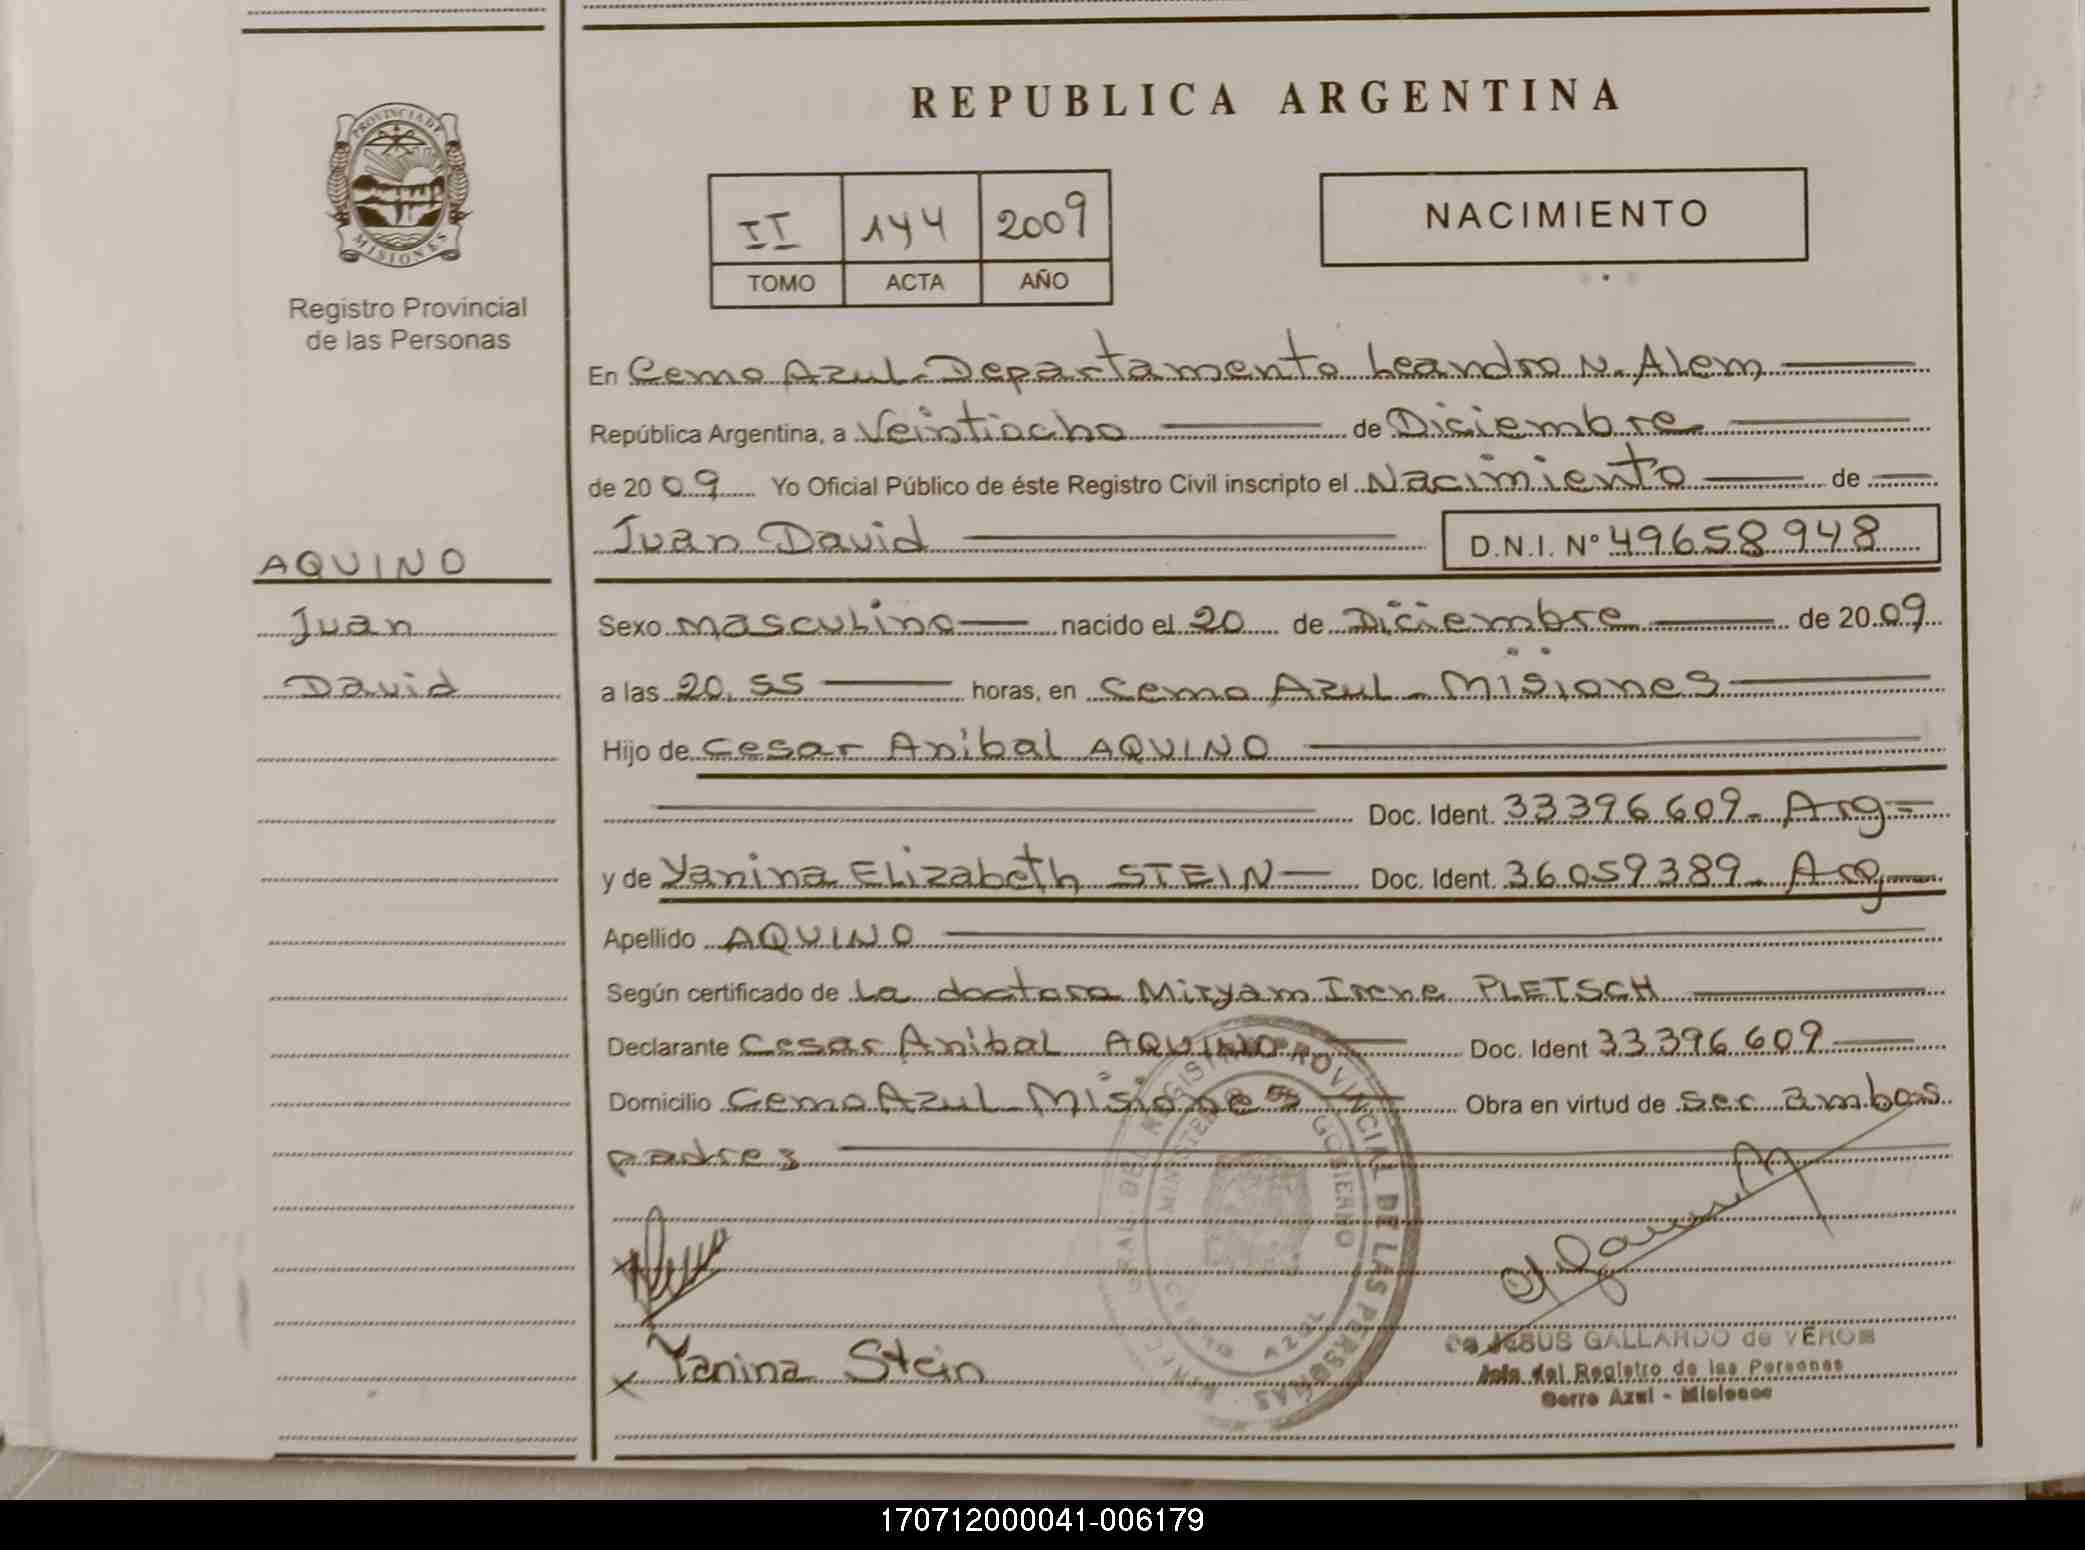 REPUBLICA ARGENTINA
PROVINCIA DE
MISIONES
Registro Provincial
de las Personas
II 144 2009
TOMO ACTA AÑO
NACIMIENTO
En Cerro Azul - Departamento Leandro N. Alem
República Argentina, a Veintiocho de Diciembre
de 2009 Yo Oficial Público de éste Registro Civil inscripto el Nacimiento de
Juan David D.N.I. Nº 49658948
AQUINO
Juan
David
Sexo masculino nacido el 20 de Diciembre de 2009
a las 20,55 horas, en Cerro Azul - Misiones
Hijo de Cesar Anibal AQUINO
Doc. Ident. 33396609 - Arg
y de Yanina Elizabeth STEIN Doc. Ident. 36059389 - Arg
Apellido AQUINO
Según certificado de La doctora Miryam Irene PLETSCH
Declarante Cesar Anibal AQUINO Doc. Ident 33396609
Domicilio Cerro Azul Misiones Obra en virtud de ser ambos
padres
PROVINCIAL DE LAS PERSONAS
GOBIERNO
CERRO AZUL
Yanina Stein
JESUS GALLARDO de
Jefa del Registro de las Personas
Cerro Azul - Misiones
170712000041-006179